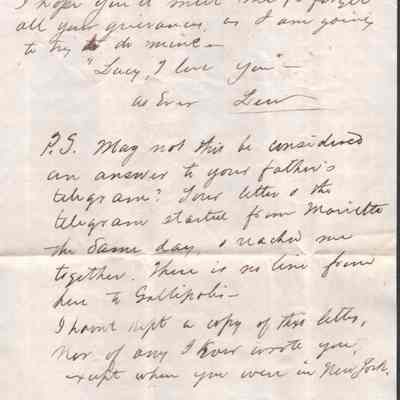 I hope you'll meet me & forget
all your grievances, as I am going
to try to do mine —
"Lucy, I love you" —
as Ever Lew
P.S. May not this be considered
an answer to your father's
telegram? Your letter & the
telegram started from Marietta
the same day, & reached me
together. There is no line from
here to Gallipolis —
I havnt kept a copy of this letter,
Nor of any I Ever wrote you,
except when you were in New York.